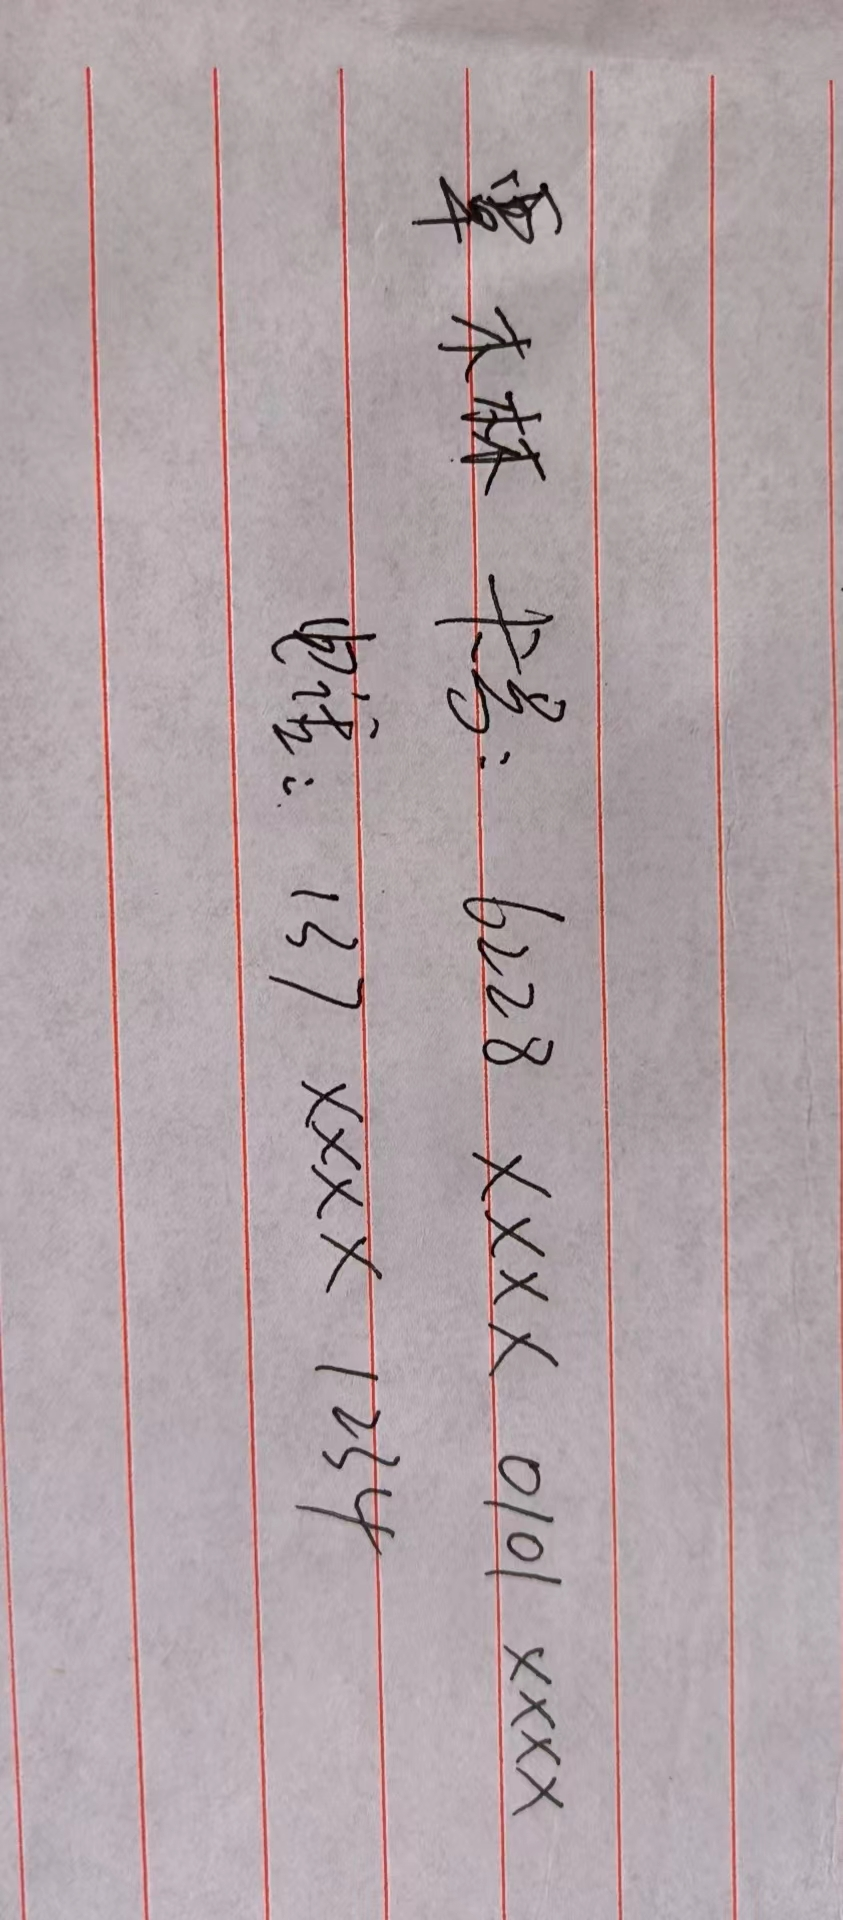 覃木林 卡号: 6228 XXXX 0101 XXXX
电话: 137 XXXX 1234